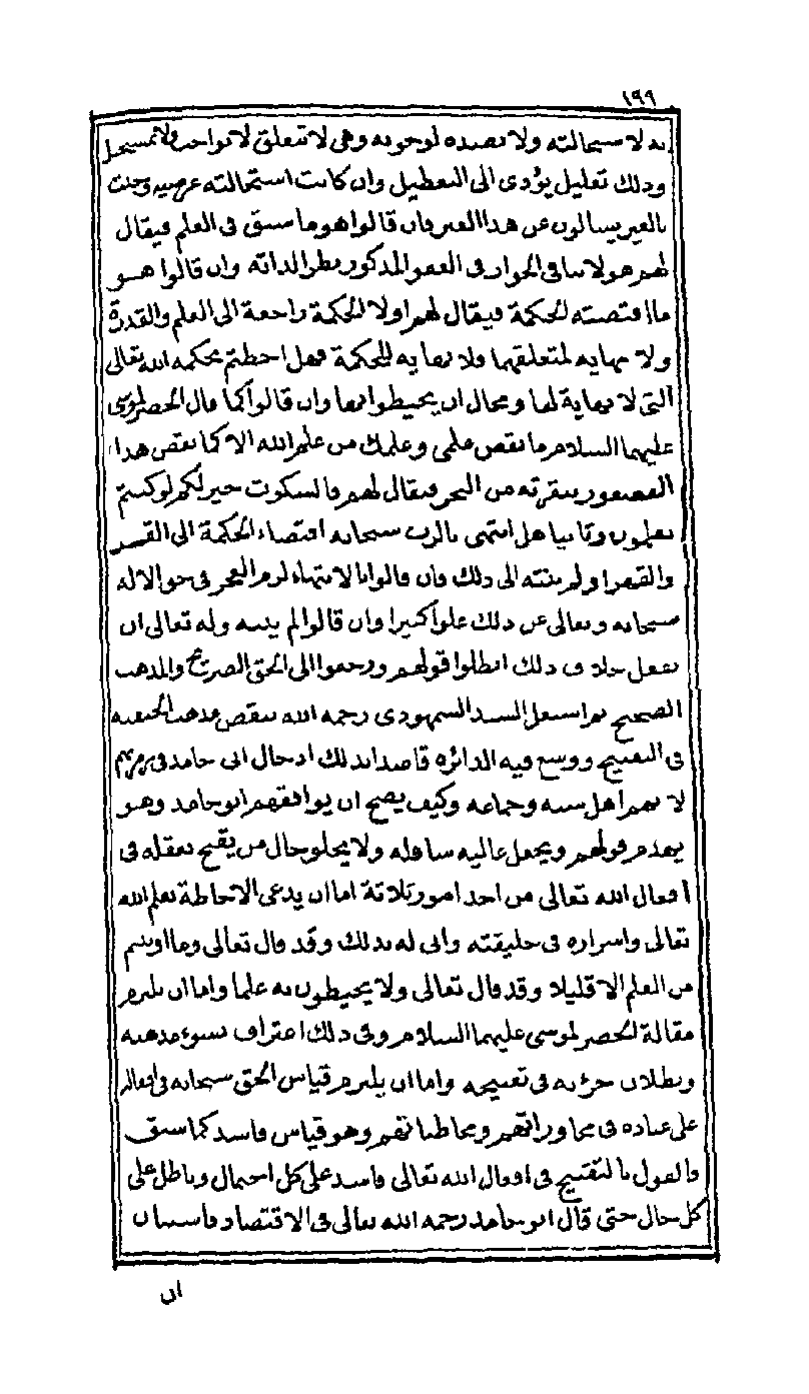 ١٩٩
به لاستحالته ولا بضده لوجوبه وهي لا تتعلق لا بواجب ولا بمستحيل
وذلك تعليل يؤدي الى التعطيل وان كانت استحالته عرضيه وجدت
بالغير يسالون عن هذا الغير فان قالوا هو ما سبق في العلم فيقال
لهم هو لا ينافي الجواز في العفو المذكور بنظر الذاته وان قالوا هو
ما اقتضته الحكمة فيقال لهم اولا الحكمة راجعة الى العلم والقدرة
ولا نهايه لمتعلقهما فلا نهايه للحكمة فهل احطتم بحكمه الله تعالى
التي لا نهاية لها ومحال ان يحيطوا بها وان قالوا كما قال الخضر لموسى
عليهما السلام ما نقص علمي وعلمك من علم الله الا كما نقص هذا
العصفور بنقرته من البحر فيقال لهم فالسكوت خير لكم لو كنتم
تعلمون وثانيا هل انتهى بالرب سبحانه اقتضاء الحكمة الى القسر
والقهر او لم ينته الى ذلك فان قالوا بالانتهاء لزم العجز في حق الاله
سبحانه وتعالى عن ذلك علوا كبيرا وان قالوا لم ينته وله تعالى ان
يفعل خلاف ذلك ابطلوا قولهم ورجعوا الى الحق الصريح والمذهب
الصحيح ثم اشتغل السيد السمهودي رحمه الله بنقض مذهب الحنفيه
في التقبيح ووسع فيه الدائره قاصدا بذلك ادخال ابي حامد في زمرتهم
لا نهم اهل سنه وجماعه وكيف يصح ان يوافقهم ابو حامد وهو
يهدم قولهم ويجعل عاليه سافله ولا يخلو حال من يقبح بعقله في
افعال الله تعالى من احد امور ثلاثة اما ان يدعي الاحاطة بعلم الله
تعالى واسراره في خليقته واني له بذلك وقد قال تعالى وما اوتيتم
من العلم الا قليلا وقد قال تعالى ولا يحيطون به علما واما ان يلتزم
مقالة الخضر لموسى عليهما السلام وفي ذلك اعتراف بسوء مذهبه
وبطلان جرءته في تقبيحه واما ان يلتزم قياس الحق سبحانه في افعاله
على عباده في محاوراتهم ومخاطباتهم وهو قياس فاسد كما سبق
والقول بالتقبيح في افعال الله تعالى فاسد على كل احتمال وباطل على
كل حال حتى قال ابو حامد رحمه الله تعالى في الاقتصاد فاستبان
ان